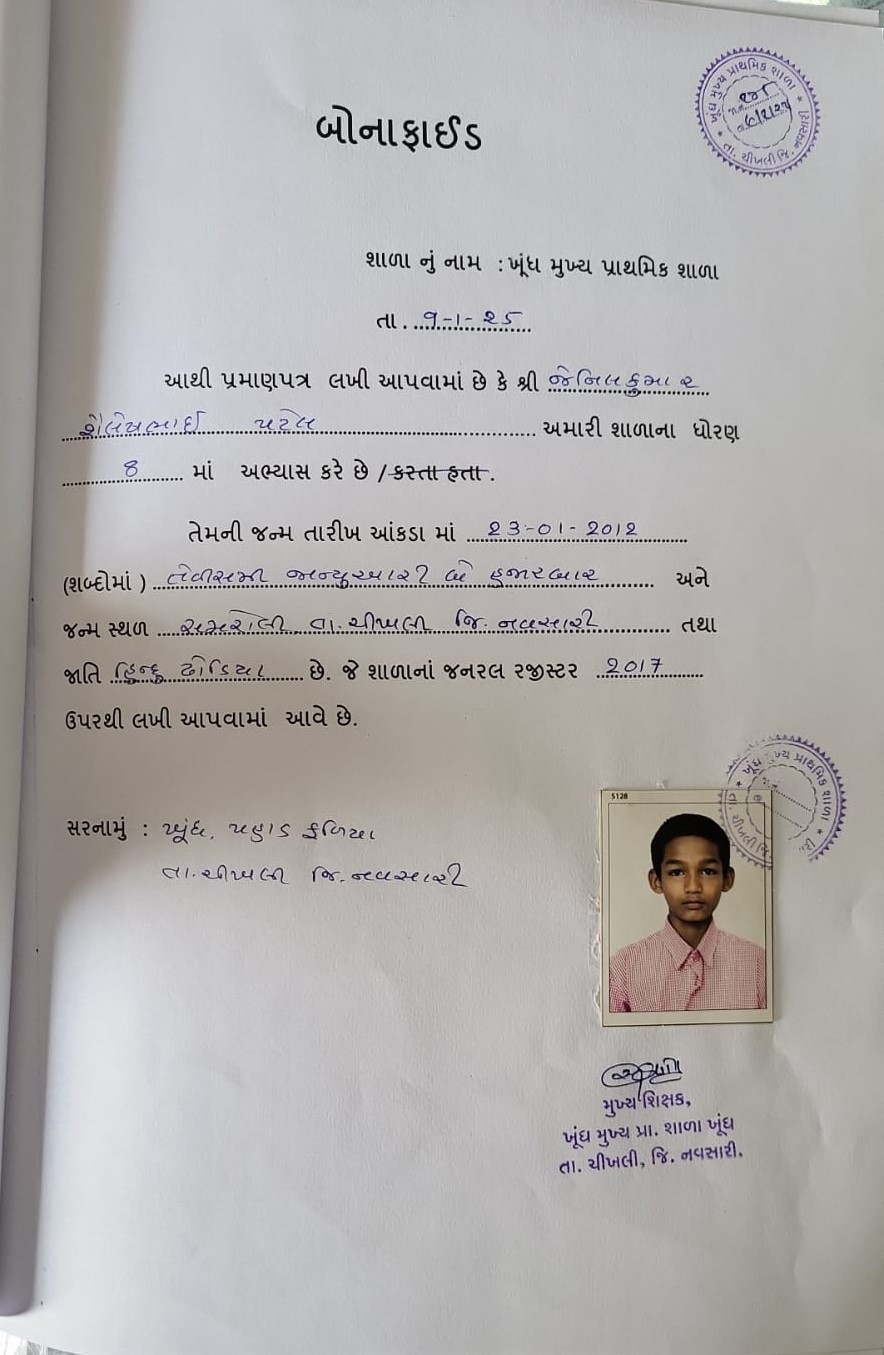 ખૂંધ મુખ્ય પ્રાથમિક શાળા
તા. ચીખલી જિ. નવસારી
બોનાફાઈડ
શાળા નું નામ : ખૂંધ મુખ્ય પ્રાથમિક શાળા
તા. ૧-૧-૨૫
આથી પ્રમાણપત્ર લખી આપવામાં છે કે શ્રી જેનિલકુમાર
શૈલેષભાઈ પટેલ અમારી શાળાના ધોરણ
8 માં અભ્યાસ કરે છે / કરતા હતા.
તેમની જન્મ તારીખ આંકડા માં 23-01-2012
(શબ્દોમાં ) તેવીસમી જાન્યુઆરી બે હજારબાર અને
જન્મ સ્થળ સમરોલી તા. ચીખલી જિ. નવસારી તથા
જાતિ હિન્દુ ઢોડિયા છે. જે શાળાનાં જનરલ રજીસ્ટર 2017
ઉપરથી લખી આપવામાં આવે છે.
સરનામું : ખૂંધ, પહાડ ફળિયા
તા. ચીખલી જિ. નવસારી
ખૂંધ મુખ્ય પ્રાથમિક શાળા
તા. ચીખલી જિ.
5128
મુખ્ય શિક્ષક,
ખૂંધ મુખ્ય પ્રા. શાળા ખૂંધ
તા. ચીખલી, જિ. નવસારી.